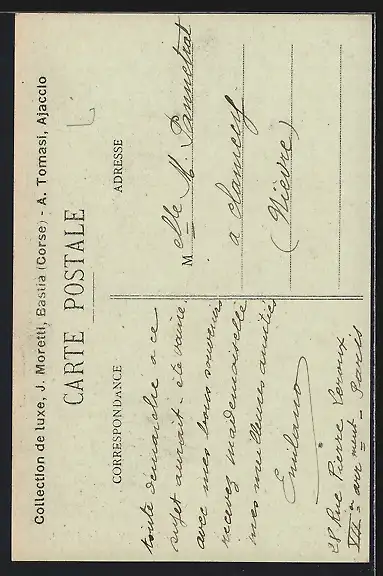 Collection de luxe, J. Moretti, Bastia (Corse) - A. Tomasi, Ajaccio
CARTE POSTALE
CORRESPONDANCE
toute démarche a ce
sujet aurait été vaine.
avec mes bons souvenirs
recevez mademoiselle
mes meilleures amitiés
Emiliano
28 Rue Pierre Leroux
VII = arr ment = Paris
ADRESSE
Melle M. Pannetrat
a Clamecy
(Nièvre)